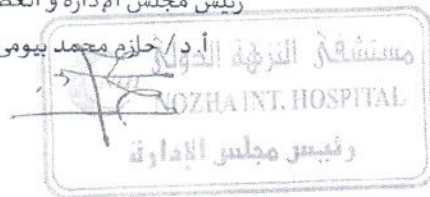 رئيس مجلس الإدارة و
أ.د/ حازم محمد بيومي
مستشفى النزهة الدولي
NOZHA INT. HOSPITAL
رئيس مجلس الإدارة